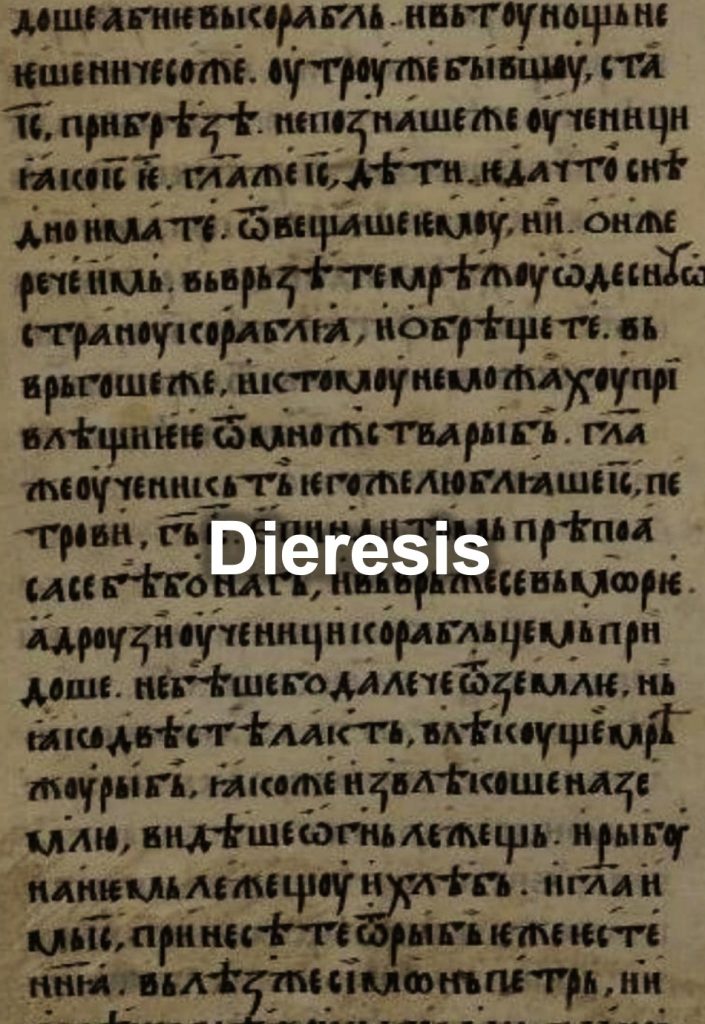 доше абиѥ вь корабль. и вь тоу нощь не
ѥше ничесоже. оутроу же бывшоу, ста
іс҃, при брѣзѣ. не познаше же оученици
ꙗко іс҃ ѥ҃. гл҃а же іс҃, дѣти. ѥда что снѣ
дно имате. ѿвещаше ѥмоу, ни. онже
рече имь. вьврьзѣте мрѣжоу ѡ деснꙋѡ
страноу кораблꙗ, и обрѣщете. вь
врьгоше же, и к томоу неможахоу прі
влѣщи ѥѥ ѿ множства рыбь. гл҃а
же оученикь тъ ѥгоже люблꙗше іс҃, пе
трови, г҃ь прѣпоа
Dieresis
са се бѣ бо нагь, и вьврьже се вь мѡрѥ.
а дроузи оученици корабльцемь при
доше. не бѣше бо далече ѿ землѥ, нь
ꙗко двѣстѣ лакть, влѣкоуще мрѣ
жоу рыбь, ꙗкоже извлѣкоше на зе
млю, видѣше ѡгнь лежещь. и рыбоу
на нѥмь лежещоу и хлѣбь. и гл҃а и
мь іс҃, принесѣте ѿ рыбь ѥже ѥсте
вьлѣз же сімѡнь петрь, и и